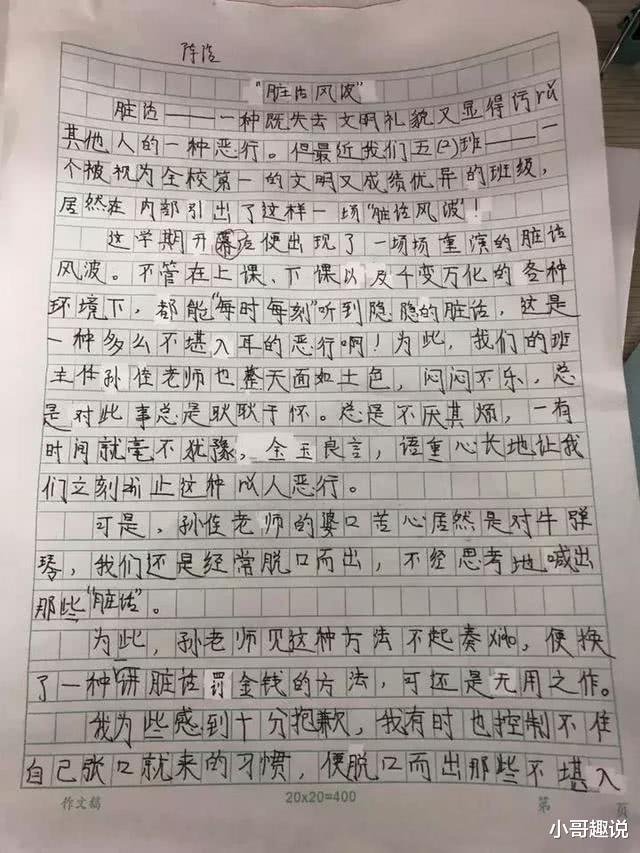 陈浩
"脏话风波"
脏话——一种既失去文明礼貌又显得污以
其他人的一种恶行。但最近我们五(2)班——一
个被视为全校第一的文明又成绩优异的班级，
居然在内部引出了这样一场"脏话风波"！
这学期开幕后便出现了一场场重演的脏话
风波。不管在上课、下课以及千变万化的各种
环境下，都能"每时每刻"听到隐隐的脏话，这是
一种多么不堪入耳的恶行啊！为此，我们的班
主任孙俊老师也整天面如土色，闷闷不乐，总
是对此事总是耿耿于怀。总是不厌其烦，一有
时间就毫不犹豫，金玉良言，语重心长地让我
们立刻制止这种以人恶行。
可是，孙俊老师的婆口苦心居然是对牛弹
琴，我们还是经常脱口而出，不经思考地喊出
那些"脏话"。
为此，孙老师见这种方法不起奏效，便换
了一种讲脏话罚金钱的方法，可还是无用之作。
我为些感到十分抱歉，我有时也控制不住
自己张口就来的习惯，便脱口而出那些不堪入
作文稿 20x20=400 第 页
小哥趣说